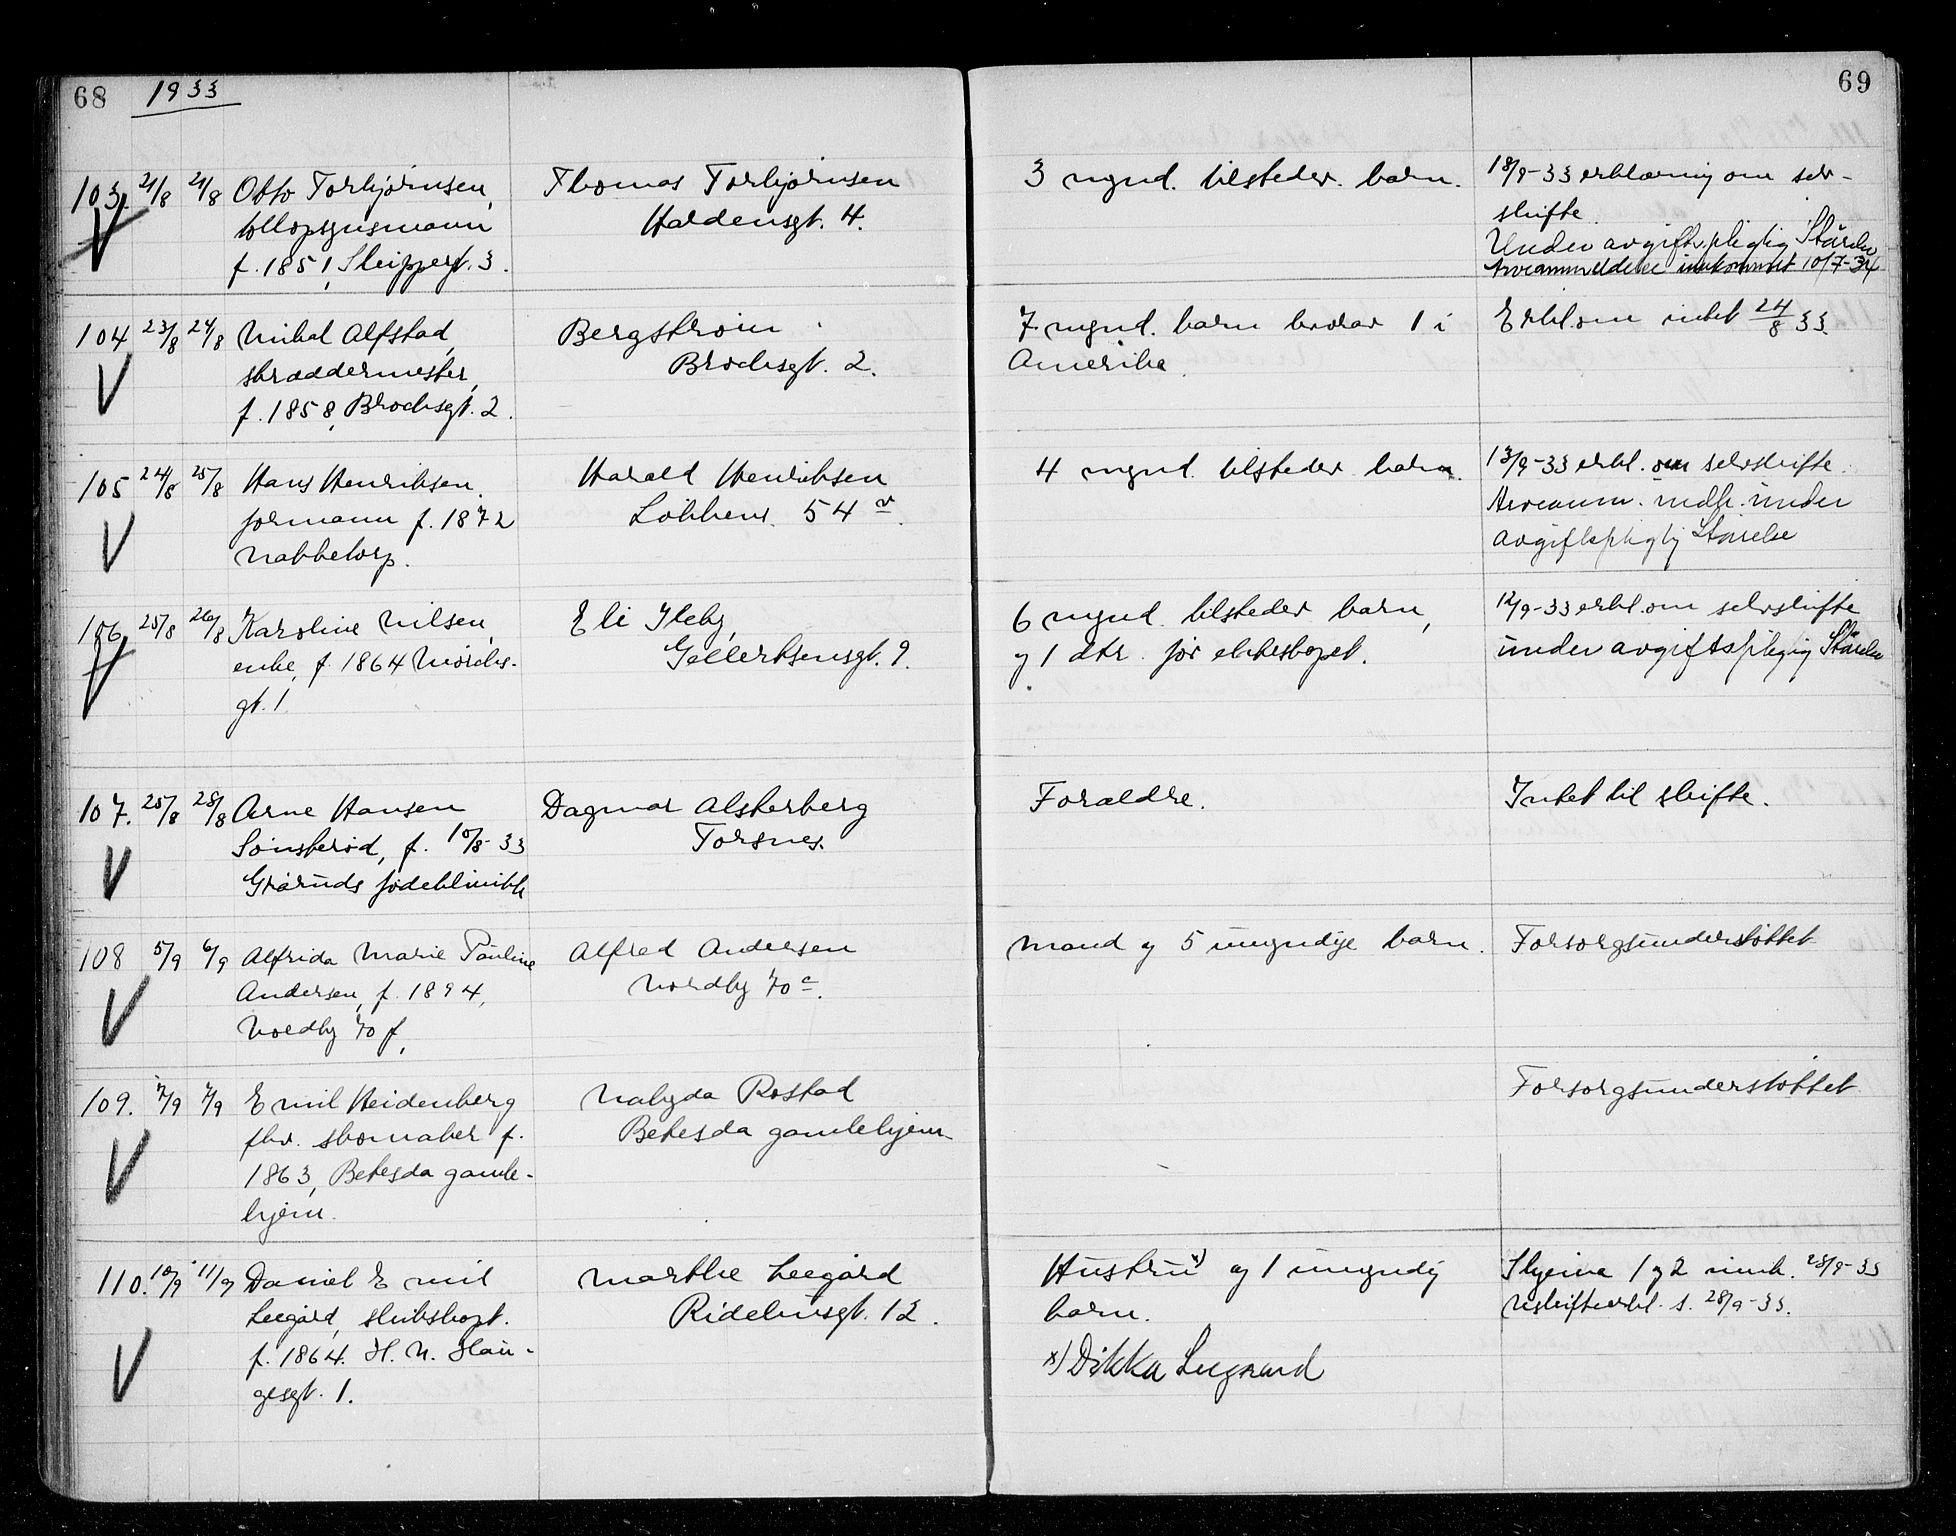 68 1933
69
103. 21/8 21/8 Otto Torbjørnsen,
tollopsynsmann
f. 1851, Sleippegt. 3.
Thomas Torbjørnsen
Haldensgt. 4.
3 mynd. tilsteder. barn.
18/9-33 erklæring om selv-
skifte.
Under avgiftspligtig Størelse
Arveanmeldelse innkommet 10/7-34
104 23/8 24/8 Mikal Alfstad,
skræddermester,
f. 1858, Brochsgt. 2.
Bergstrøm
Brochsgt. 2.
7 mynd. barn hvorav 1 i
Amerika.
Erkl. om intet 24/8 33.
105 24/8 25/8 Hans Henriksen.
formann f. 1872
Nabbetorp.
Harald Henriksen
Labbens 54 v.
4 mynd. tilsteder barn.
13/9-33 erkl. om selvskifte.
Arveanm. indk. under
avgiftspligtig Størrelse
106 25/8 26/8 Karoline Nilsen,
enke, f. 1864 Mørchs-
gt. 1.
Eli Ileby,
Gellertsensgt. 9.
6 mynd. tilsteder barn,
og 1 dtr. før ekteskapet.
12/9-33 erkl. om selvskifte
under avgiftspligtig Størelse
107. 25/8 28/8 Arne Hansen
Sønsterød, f. 10/8-33
Grøruds fødeklinikk
Dagmar Alsterberg
Torsnes.
Foreldre.
Intet til skifte.
108 5/9 6/9 Alfrida Marie Pauline
Andersen, f. 1894,
Nordby 70 f.
Alfred Andersen
Nordby 70 c.
Mand og 5 umyndige barn.
Forsorgsunderstøttet
109. 7/9 7/9 Emil Heidenberg
fhv. skomaker f.
1863, Betesda gamle-
hjem.
Nalyda Rostad
Betesda gamlehjem
Forsorgsunderstøttet
110. 10/9 11/9 Daniel Emil
Leegård, skibskapt.
f. 1864. H. N. Hau-
gesgt. 1.
Marthe Leegård
Ridehusgt. 12.
Hustru x) og 1 umyndig
barn.
x) Dikka Leegaard
Skjema 1 og 2 innk. 28/9-33
Uskifteerkl. s. 28/9-33.